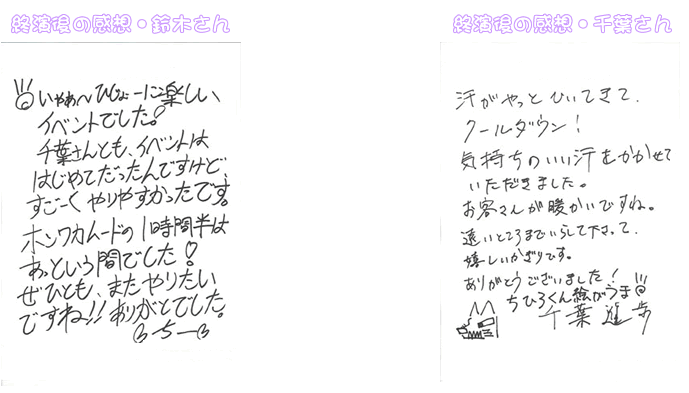 終演後の感想・鈴木さん
いやぁ〜ひじょーに楽しい
イベントでした!
千葉さんとも、イベントは
はじめてだったんですけど、
すごーくやりやすかったです。
ホンワカムードの1時間半は
あっという間でした!
ぜひとも、またやりたい
ですね!!ありがとでした。
終演後の感想・千葉さん
汗がやっとひいてきて、
クールダウン!
気持ちのいい汗をかかせて
いただきました。
お客さんが暖かいですね。
遠いところまでいらして下さって、
嬉しいかぎりです。
ありがとうございました!
ちひろくん絵がうま
千葉進歩